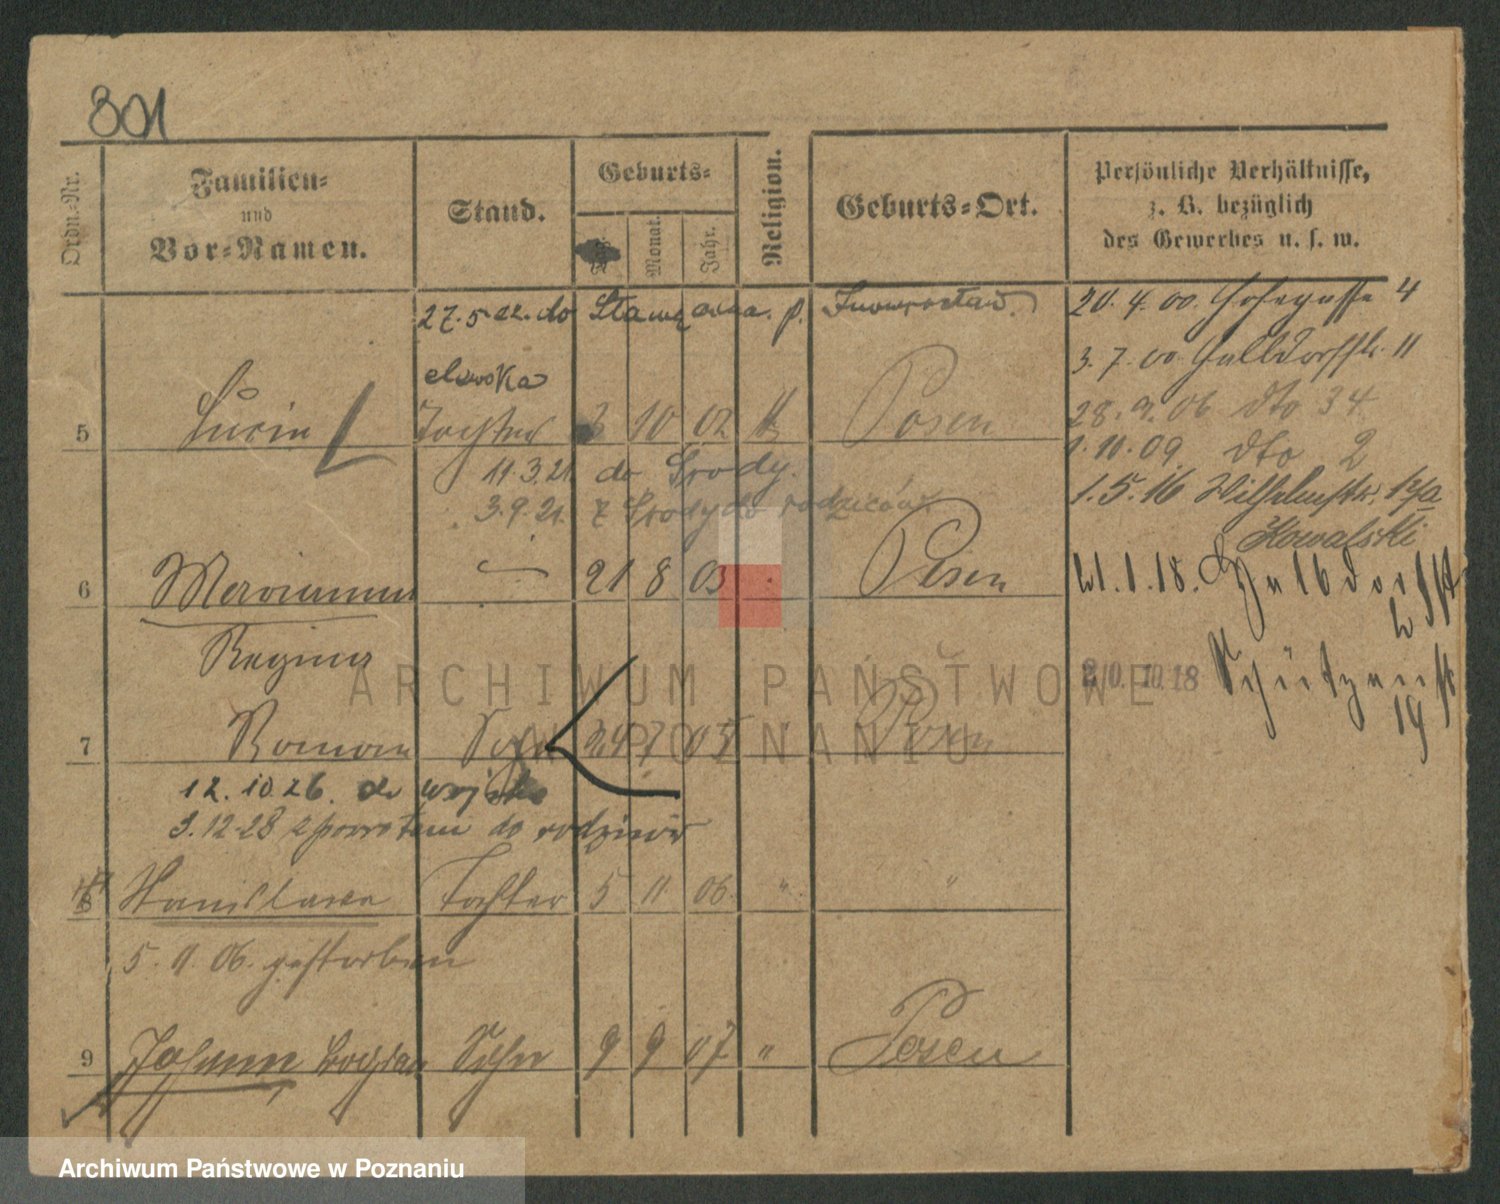 801
Ordn.-Nr.
Familien-
und
Vor-Namen.
Stand.
Geburts-
Monat.
Jahr.
Religion.
Geburts-Ort.
Persönliche Verhältnisse,
z. B. bezüglich
des Gewerbes u. s. w.
27.5.22. do p. Inowrocław.
20. 4. 00. 4
3. 7. 00. 11
5 Lucia Tochter 3 10 02 Posen
28. 9. 06 dto 34
1. 10. 09 dto 2
11.3.21. do Środy.
1. 5. 16 Wilhelmstr.
3.9.21. z Środy do rodziców.
Kowalski
6 21 8 03 Posen
21. 1. 18.
Regina
10. 18 Schützenstr
19
7 Roman Sohn 24 7 05 Posen
12. 10 26. do wojska
3. 12 28 z powrotem do rodziców
8 Stanislawa Tochter 5 11 06. " "
5. 11. 06. gestorben
9 Johann Bogdan Sohn 9 9 07 " Posen
ARCHIWUM PAŃSTWOWE
W POZNANIU
Archiwum Państwowe w Poznaniu